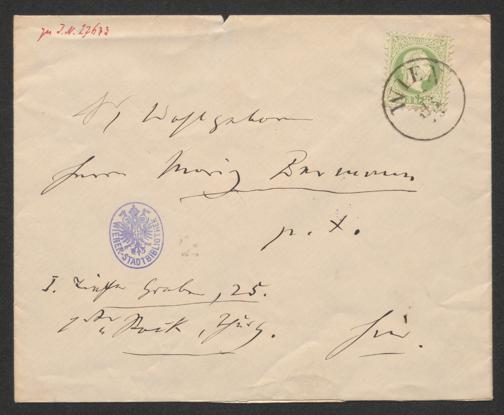 zu I.N. 27673
WIEN
Sr, Wohlgeboren
Herrn Moriz Bermann
p. t.
WIENER-STADTBIBLIOTHEK
I. Tiefer Graben, 25.
Stock, Thür
hier.